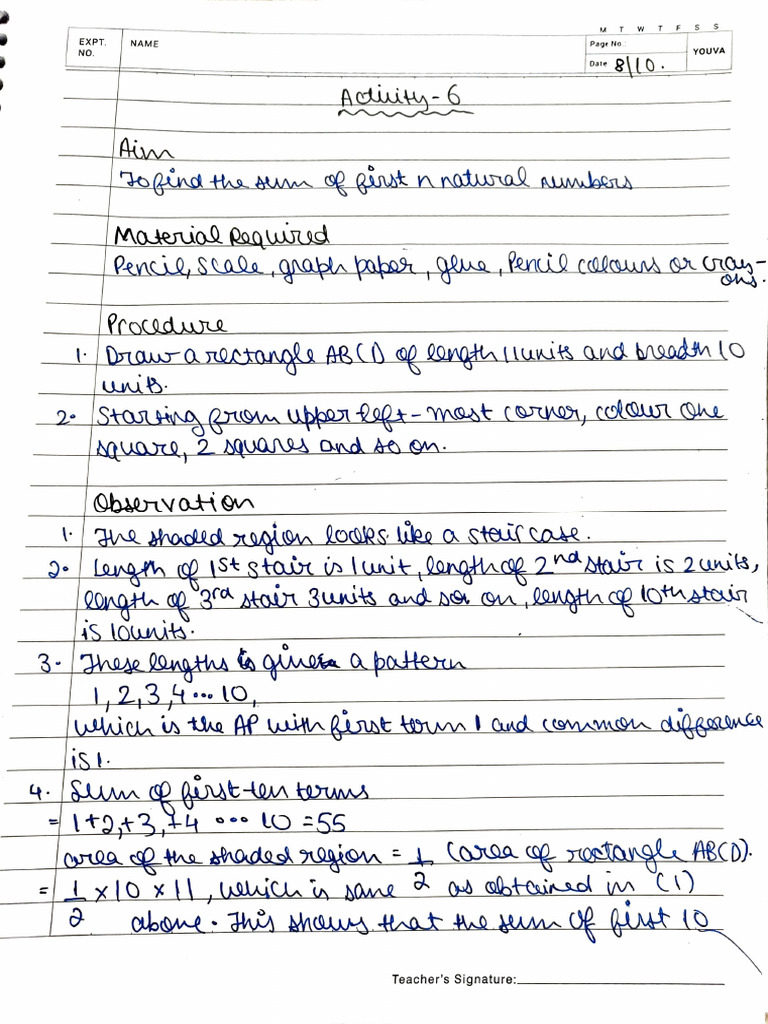 M T W T F S S
EXPT. NO. NAME Page No.: YOUVA
Date 8/10.
Activity-6
Aim
To find the sum of first n natural numbers
Material Required
Pencil, scale, graph paper, glue, Pencil colours or cray-
ons.
Procedure
1. Draw a rectangle ABCD of length 11 units and breadth 10
units.
2. Starting from upper left-most corner, colour one
square, 2 squares and so on.
Observation
1. The shaded region looks like a stair case.
2. Length of 1st stair is 1 unit, length of 2nd stair is 2 units,
length of 3rd stair 3 units and so on, length of 10th stair
is 10 units.
3. These lengths give a pattern
1, 2, 3, 4 ... 10,
which is the AP with first term 1 and common difference
is 1.
4. Sum of first ten terms
= 1+2,+3,+4 ... 10 = 55
area of the shaded region = 1/2 (area of rectangle ABCD).
= 1/2 × 10 × 11, which is same as obtained in (1)
above. This shows that the sum of first 10
Teacher's Signature: